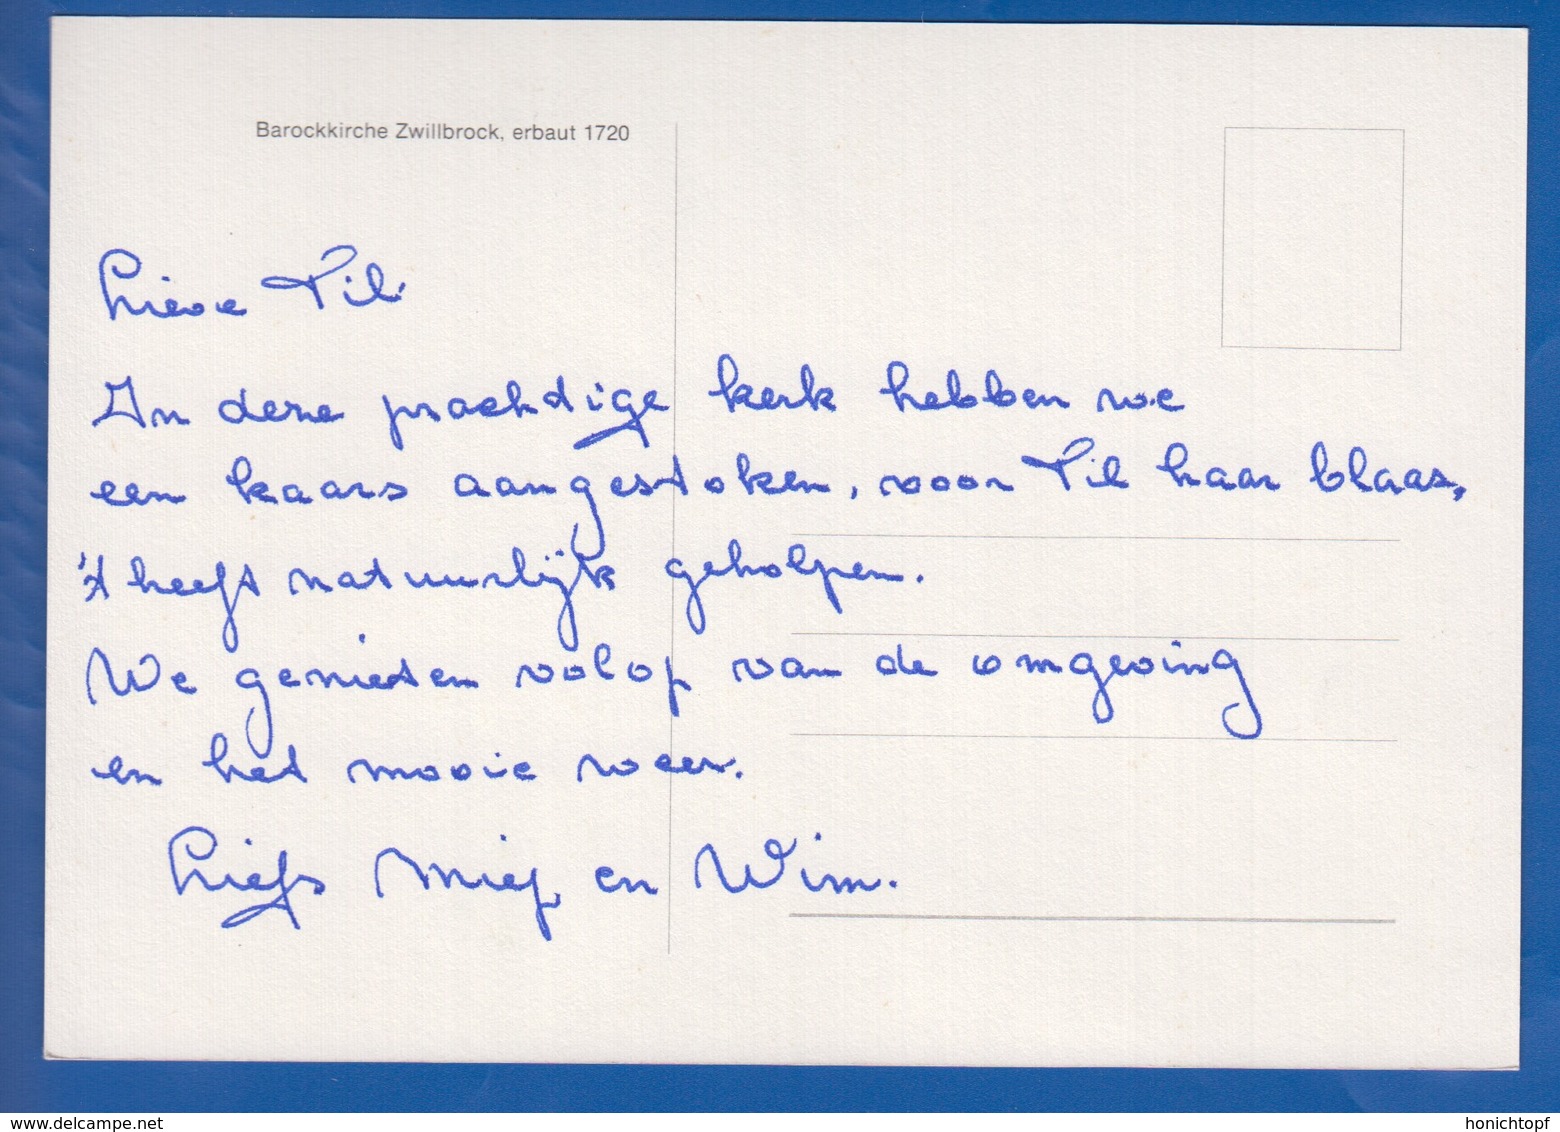 Barockkirche Zwillbrock, erbaut 1720
Lieve Til.
In deze prachtige kerk hebben we
een kaars aangestoken, voor Til haar blaas,
't heeft natuurlijk geholpen.
We genieten volop van de omgeving
en het mooie weer.
Liefs Miep en Wim.
www.delcampe.net
honichtopf